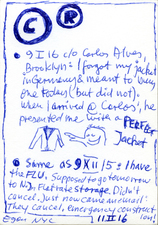 C R
• 9 II 16 c/o Carlos Alves,
Brooklyn: I forgot my jacket
in Germany & meant to buy
one today (but did not).
When I arrived @ Carlos', he
presented me with a PERFECT
Jacket
• Same as 9 X II 15: I have
the FLU. Supposed to go tomorrow
to NJ. Flat rate storage. Didn't
cancel. Just now came an email:
They cancel, emergency construct
ion!
Egon NYC 11.II 16